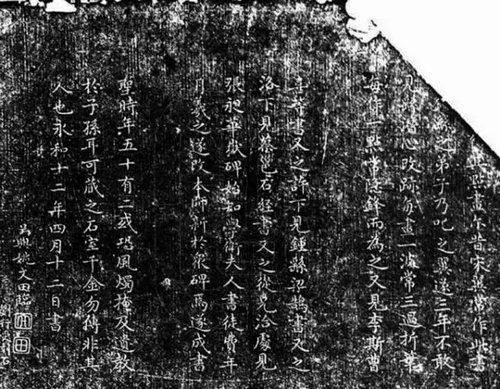 畫尔昔宋翼常作此書
之弟子乃叱之翼遂三年不敢
潛心改跡每畫一波常三過折筆
每作一點常隱鋒而為之又見李斯曹
喜等書又之許下見鍾繇梁鵠書又之
洛下見蔡邕石經書又之從兄洽處見
張昶華嶽碑始知學衛夫人書徒費年
月羲之遂改本師新於眾碑焉遂成書
聖時年五十有二或恐風燭掩及遺教
於子孫耳可藏之石室千金勿傳非其
人也永和十二年四月十二日書
吳興姚文田臨